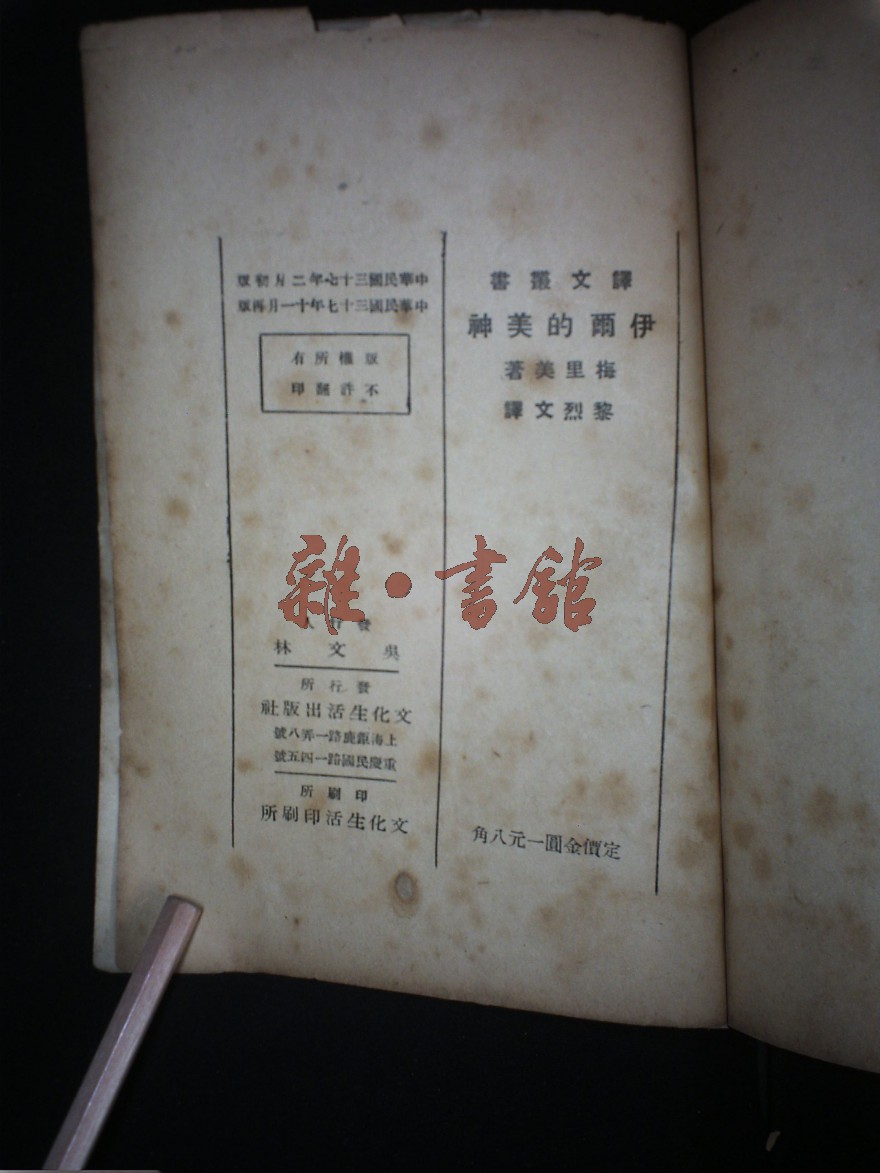 譯文叢書
伊爾的美神
梅里美著
黎烈文譯
定價金圓一元八角
中華民國三十七年二月初版
中華民國三十七年十一月再版
版權所有
不許翻印
發行人
吳文林
發行所
文化生活出版社
上海鉅鹿路一弄八號
重慶民國路一四五號
印刷所
文化生活印刷所
雜·書館